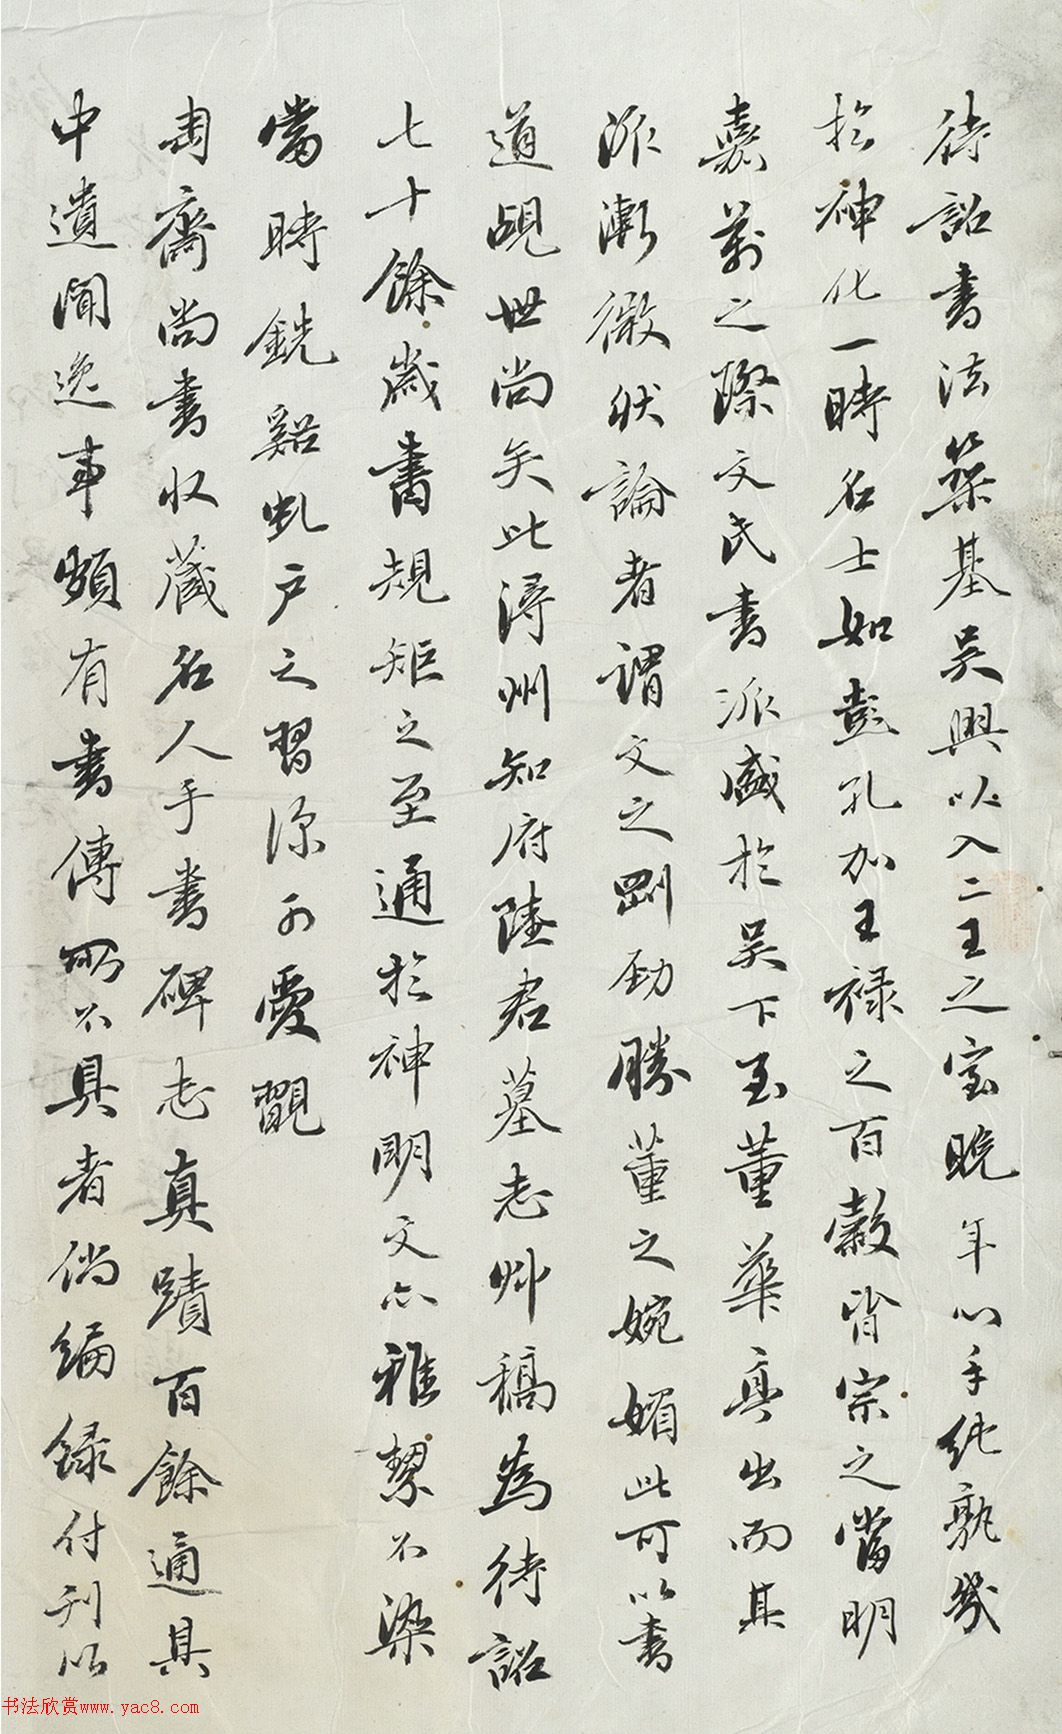 待詔書法築基吳興以入二王之室晚年心手純孰幾
於神化一時名士如彭孔加王祿之百穀皆宗之當明
嘉萬之際文氏書派盛於吳下至董華亭出而其
派漸微然論者謂文之剛勁勝董之婉媚此可以書
道覘世尚矣此潯州知府陸君墓志艸稿為待詔
七十餘歲書規矩之至通於神明文亦雅絜不染
當時銑谿虬戶之習深可愛翫
匋齋尚書收藏名人手書碑志真蹟百餘通其
中遺聞逸事頗有書傳所不具者倘編錄付刊以
书法欣赏www.yac8.com